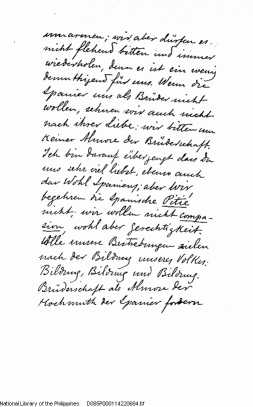 umarmen; wir aber dürfen es
nicht flehend bitten und immer
wiederholen, denn es ist ein wenig
demüthigend für uns. Wenn die
Spanier uns als Brüder nicht
wollen, sehnen wir auch nicht
nach ihrer Liebe; wir bitten um
keiner Almose der Brüderschaft.
Ich bin darauf überzeugt dass du
uns sehr viel liebst, ebenso auch
das Wohl Spaniens; aber wir
begehren die Spanische Pitié
nicht; wir wollen nicht compa-
sion, wohl aber Gerechtigkeit.
Alle unsere Bestrebungen zielen
nach der Bildung unseres Volkes:
Bildung, Bildung und Bildung.
Brüderschaft als Almose der
Hochmuth der Spanier fordern
National Library of the Philippines